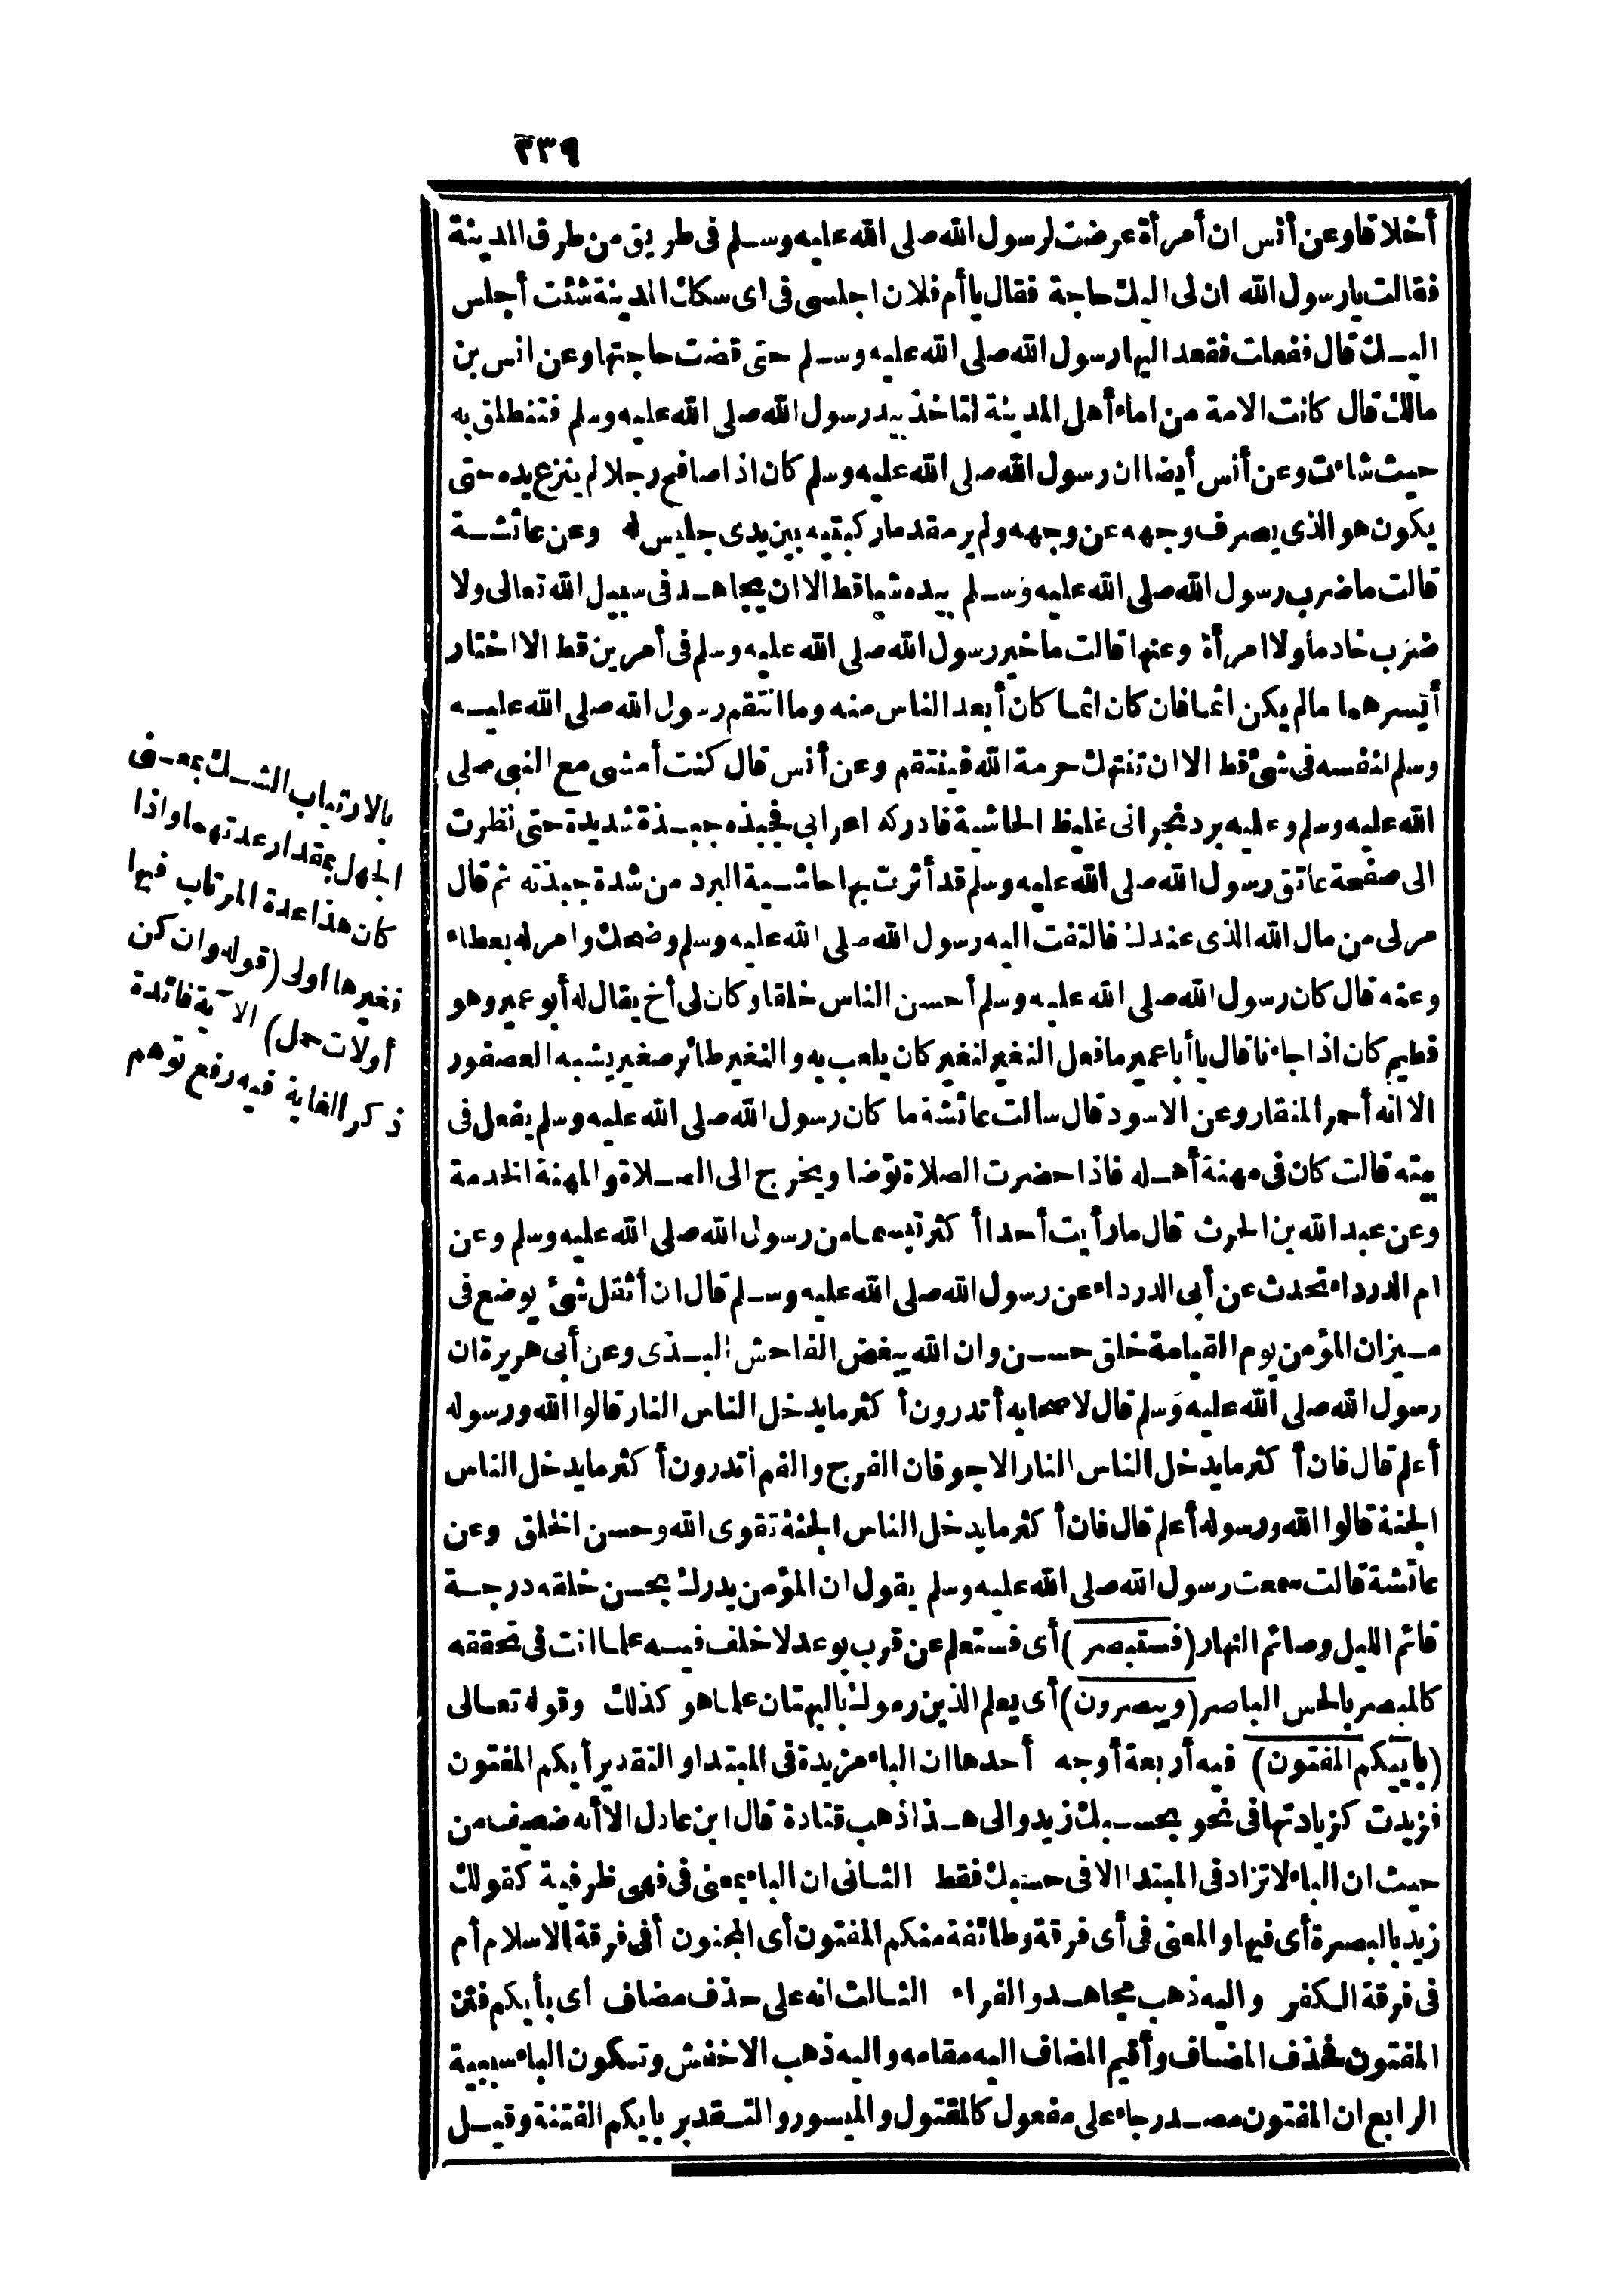 ٣٣٩
أخلاقا وعن أنس ان أمرأة عرضت لرسول الله صلى الله عليه وسلم فى طريق من طرق المدينة
فقالت يارسول الله ان لى اليك حاجة فقال ياأم فلان اجلسى فى اى سكك المدينة شئت أجلس
اليك قال ففعلت فقعد اليها رسول الله صلى الله عليه وسلم حتى قضت حاجتها وعن انس بن
مالك قال كانت الامة من اماء أهل المدينة لتاخذ بيد رسول الله صلى الله عليه وسلم فتنطلق به
حيث شاءت وعن أنس أيضا ان رسول الله صلى الله عليه وسلم كان اذا صافح رجلا لم ينزع يده حتى
يكون هو الذى يصرف وجهه عن وجهه ولم ير مقدما ركبتيه بين يدى جليس له وعن عائشة
قالت ماضرب رسول الله صلى الله عليه وسلم بيده شيا قط الا ان يجاهد فى سبيل الله تعالى ولا
ضرب خادما ولا امرأة وعنها قالت ماخير رسول الله صلى الله عليه وسلم فى أمرين قط الا اختار
أيسرهما مالم يكن اثما فان كان اثما كان أبعد الناس منه وما انتقم رسول الله صلى الله عليه
وسلم لنفسه فى شئ قط الا ان تنتهك حرمة الله فينتقم وعن أنس قال كنت أمشى مع النبى صلى
الله عليه وسلم وعليه برد نجرانى غليظ الحاشية فادركه اعرابي فجبذه جبذة شديدة حتى نظرت
الى صفحة عاتق رسول الله صلى الله عليه وسلم قد أثرت بها حاشية البرد من شدة جبذته ثم قال
مر لى من مال الله الذى عندك فالتفت اليه رسول الله صلى الله عليه وسلم وضحك وامر له بعطاء
وعنه قال كان رسول الله صلى الله عليه وسلم أحسن الناس خلقا وكان لى أخ يقال له أبو عمير وهو
فطيم كان اذا جاءنا قال ياأبا عمير مافعل النغير لنغير كان يلعب به والنغير طائر صغير يشبه العصفور
الا انه أحمر المنقار وعن الاسود قال سألت عائشة ما كان رسول الله صلى الله عليه وسلم يفعل فى
بيته قالت كان فى مهنة أهله فاذا حضرت الصلاة توضا ويخرج الى الصلاة والمهنة الخدمة
وعن عبد الله بن الحرث قال مارأيت أحدا أكثر تبسما من رسول الله صلى الله عليه وسلم وعن
ام الدرداء تحدث عن أبى الدرداء عن رسول الله صلى الله عليه وسلم قال ان أثقل شئ يوضع فى
ميزان المؤمن يوم القيامة خلق حسن وان الله يبغض الفاحش البذى وعن أبى هريرة ان
رسول الله صلى الله عليه وسلم قال لاصحابه أتدرون أكثر مايدخل الناس النار قالوا الله ورسوله
أعلم قال فان أكثر مايدخل الناس النار الاجوفان الفرج والفم اتدرون أكثر مايدخل الناس
الجنة قالوا الله ورسوله أعلم قال فان أكثر مايدخل الناس الجنة تقوى الله وحسن الخلق وعن
عائشة قالت سمعت رسول الله صلى الله عليه وسلم يقول ان المؤمن يدرك بحسن خلقه درجة
قائم الليل وصائم النهار (فستبصر) أى فستعلم عن قرب بوعد لا خلف فيه علما انت فى تحققه
كالمبصر بالحس الباصر (ويبصرون) أى يعلم الذين رموك بالبهتان علما هو كذلك وقوله تعالى
(بأييكم المفتون) فيه أربعة أوجه أحدها ان الباء مزيدة فى المبتدا والتقدير أيكم المفتون
فزيدت كزيادتها فى نحو بحسبك زيد والى هذا ذهب قتادة قال ابن عادل الا أنه ضعيف من
حيث ان الباء لا تزاد فى المبتدا الا فى حسبك فقط الثانى ان الباء بمعنى فى فهى ظرفية كقولك
زيد بالبصرة أى فيها والمعنى فى أى فرقة وطائفة منكم المفتون أى المجنون أفى فرقة الاسلام أم
فى فرقة الكفر واليه ذهب مجاهد والفراء الثالث انه على حذف مضاف اى بأيكم فتن
المفتون فحذف المضاف وأقيم المضاف اليه مقامه واليه ذهب الاخفش وتكون الباء سببية
الرابع ان المفتون مصدر جاء على مفعول كالمقتول والميسور والتقدير بايكم الفتنة وقيل
بالارتياب الشك بمعنى
الجهل بمقدار عدتهما واذا
كان هذا عدة المرتاب فيها
فغيرها اولى (قوله وان كن
أولات حمل) الآية فائدة
ذكر الغاية فيه رفع توهم